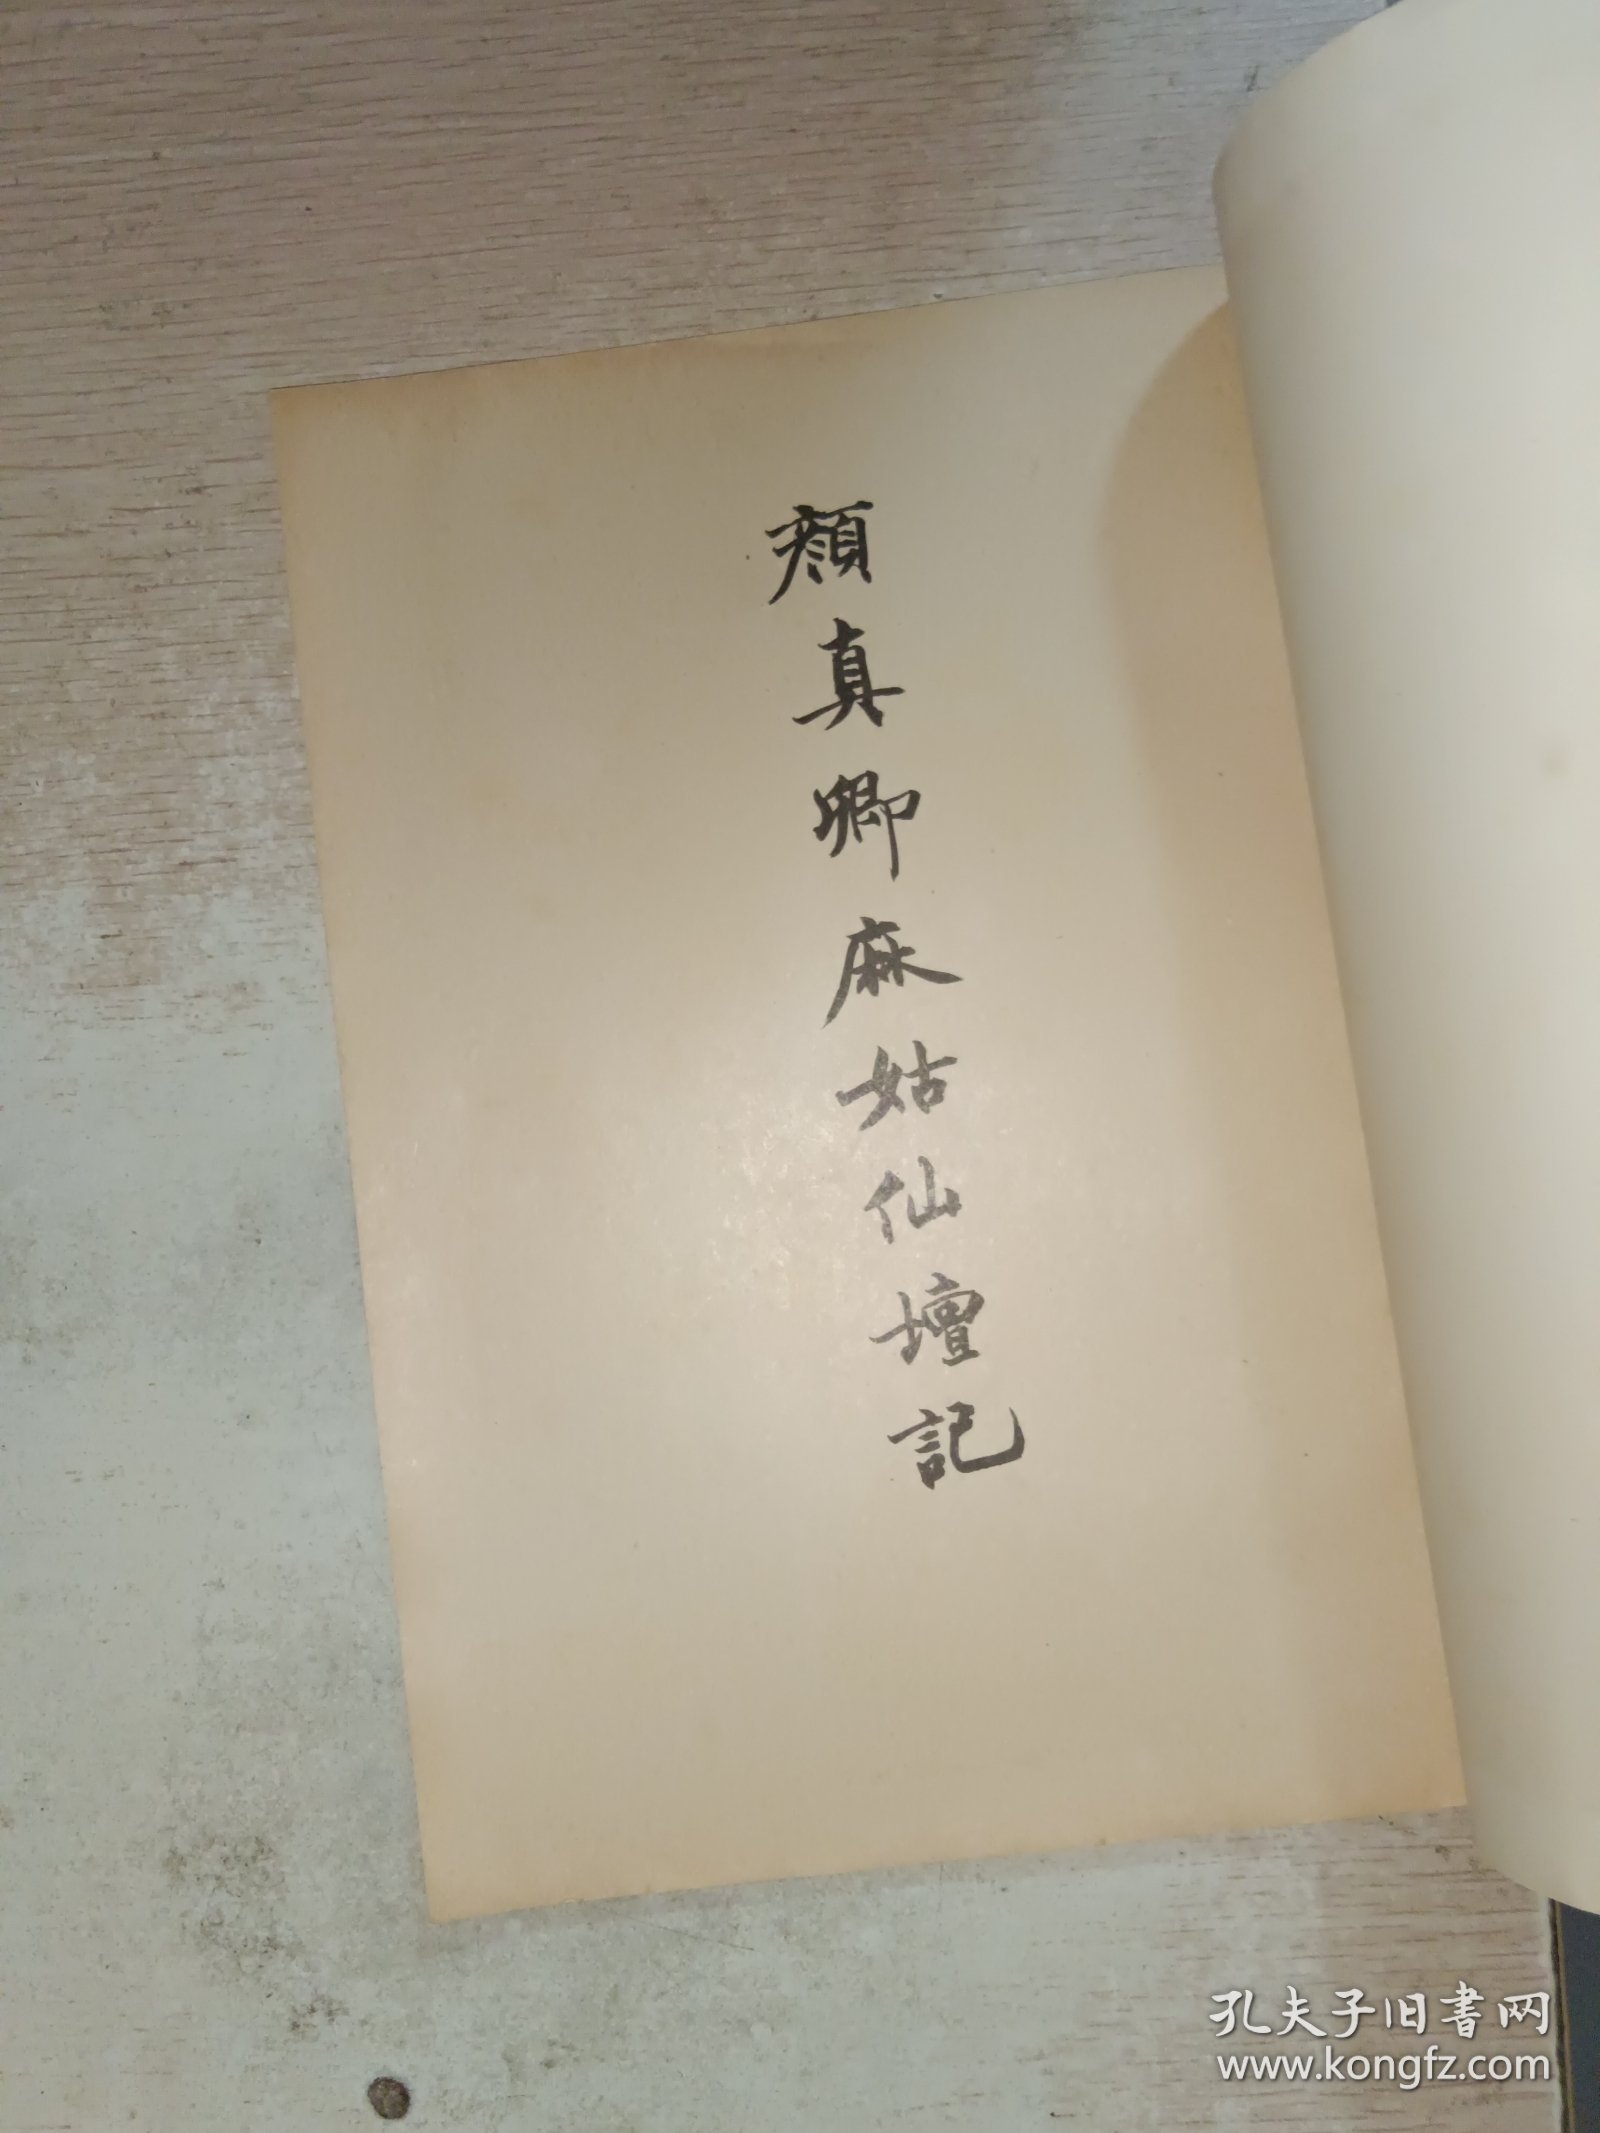 顔真卿麻姑仙壇記
孔夫子旧書网
www.kongfz.com